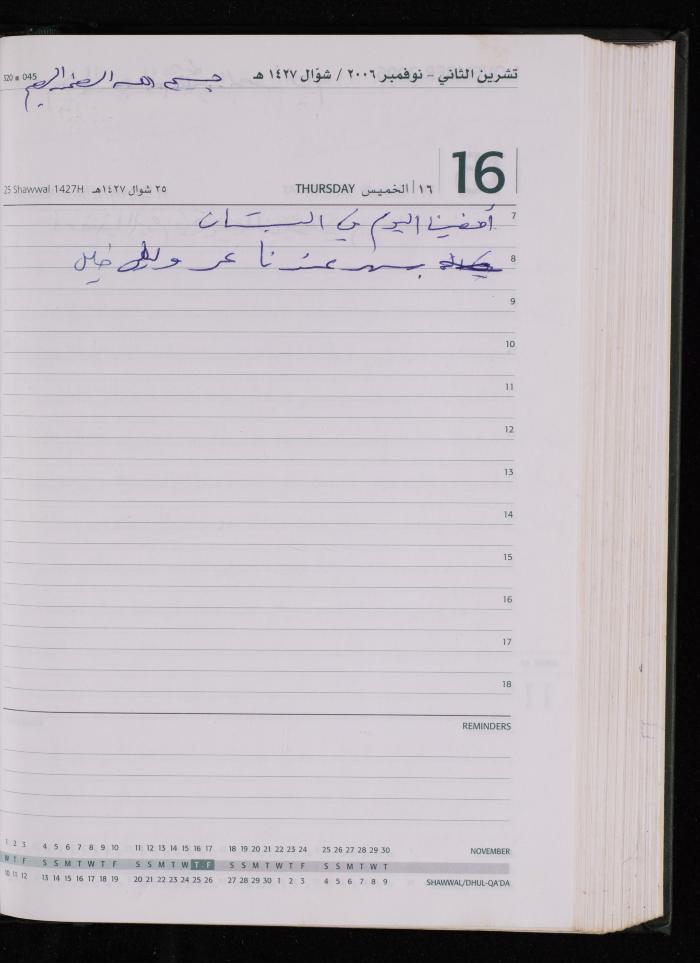 تشرين الثاني - نوفمبر ٢٠٠٦ / شوّال ١٤٢٧ هـ
320 ■ 045
بسم الله الرحمن الرحيم
16
25 Shawwal 1427H ٢٥ شوال ١٤٢٧هـ THURSDAY ١٦ الخميس
7 أمضينا اليوم في البستان
8 سهر عندنا عمر خليل
9
10
11
12
13
14
15
16
17
18
REMINDERS
1 2 3 4 5 6 7 8 9 10 11 12 13 14 15 16 17 18 19 20 21 22 23 24 25 26 27 28 29 30 NOVEMBER
W T F S S M T W T F S S M T W T F S S M T W T F S S M T W T
10 11 12 13 14 15 16 17 18 19 20 21 22 23 24 25 26 27 28 29 30 1 2 3 4 5 6 7 8 9 SHAWWAL/DHUL-QA'DA